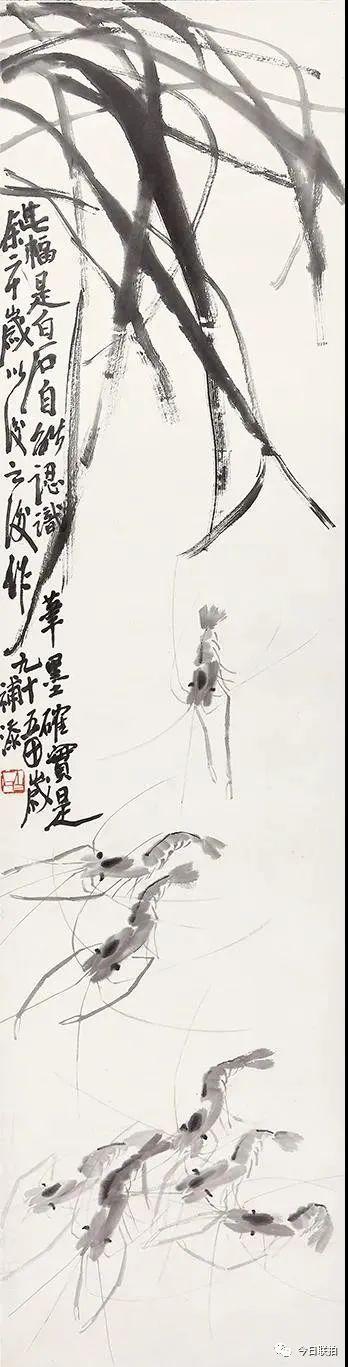 此幅是白石自能認識筆墨確實是
余六十歲以後之後作
九十五歲
補添
今日联拍